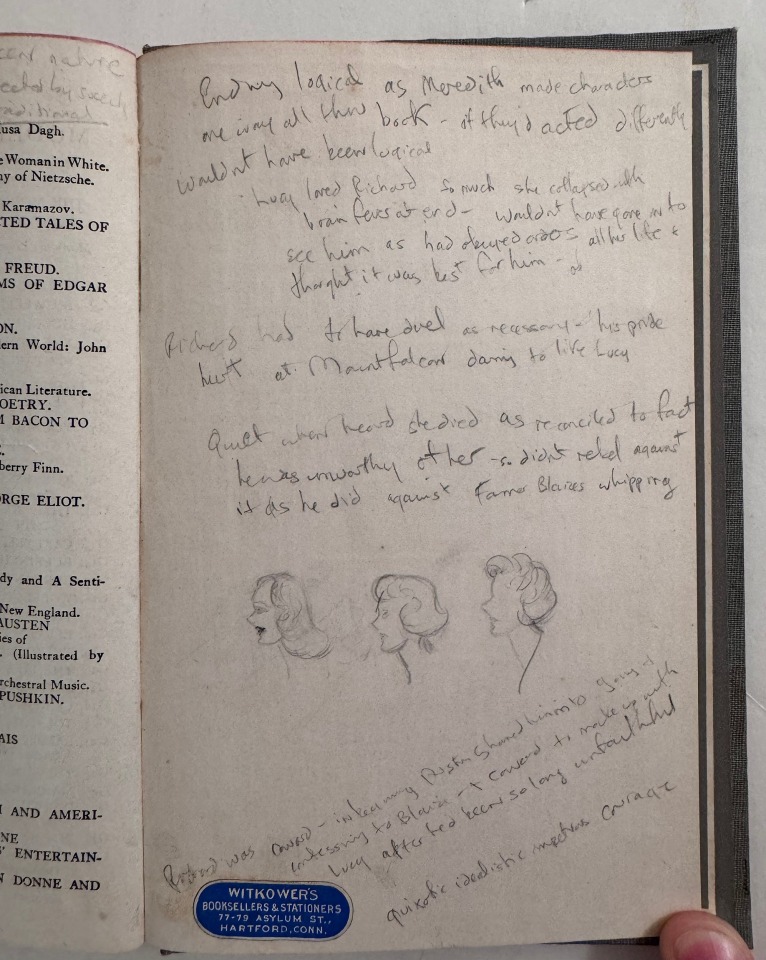 nature
traditional
usa Dagh.
e Woman in White.
ny of Nietzsche.
Karamazov.
TED TALES OF
FREUD.
MS OF EDGAR
ON.
ern World: John
ican Literature.
OETRY.
M BACON TO
berry Finn.
RGE ELIOT.
dy and A Senti-
New England.
AUSTEN
ies of
. (Illustrated by
rchestral Music.
PUSHKIN.
AIS
AND AMERI-
NE
' ENTERTAIN-
N DONNE AND
Ending logical as Meredith made characters
one way all thru book - if they'd acted differently
wouldn't have been logical
Lucy loved Richard so much she collapsed with
brain fever at end - wouldn't have gone in to
see him as had obeyed orders all her life &
thought it was best for him -
Richard had to have duel as necessary - his pride
hurt at Mountfalcon daring to like Lucy
Quiet when heard she died as reconciled to fact
he was unworthy of her - so didn't rebel against
it as he did against Farmer Blaizes whipping
Richard was coward - in beginning Austin shamed him into going &
confessing to Blaize - & coward to make up with
Lucy after had been so long unfaithful
quixotic idealistic impetuous courage
WITKOWER'S
BOOKSELLERS & STATIONERS
77-79 ASYLUM ST.,
HARTFORD, CONN.